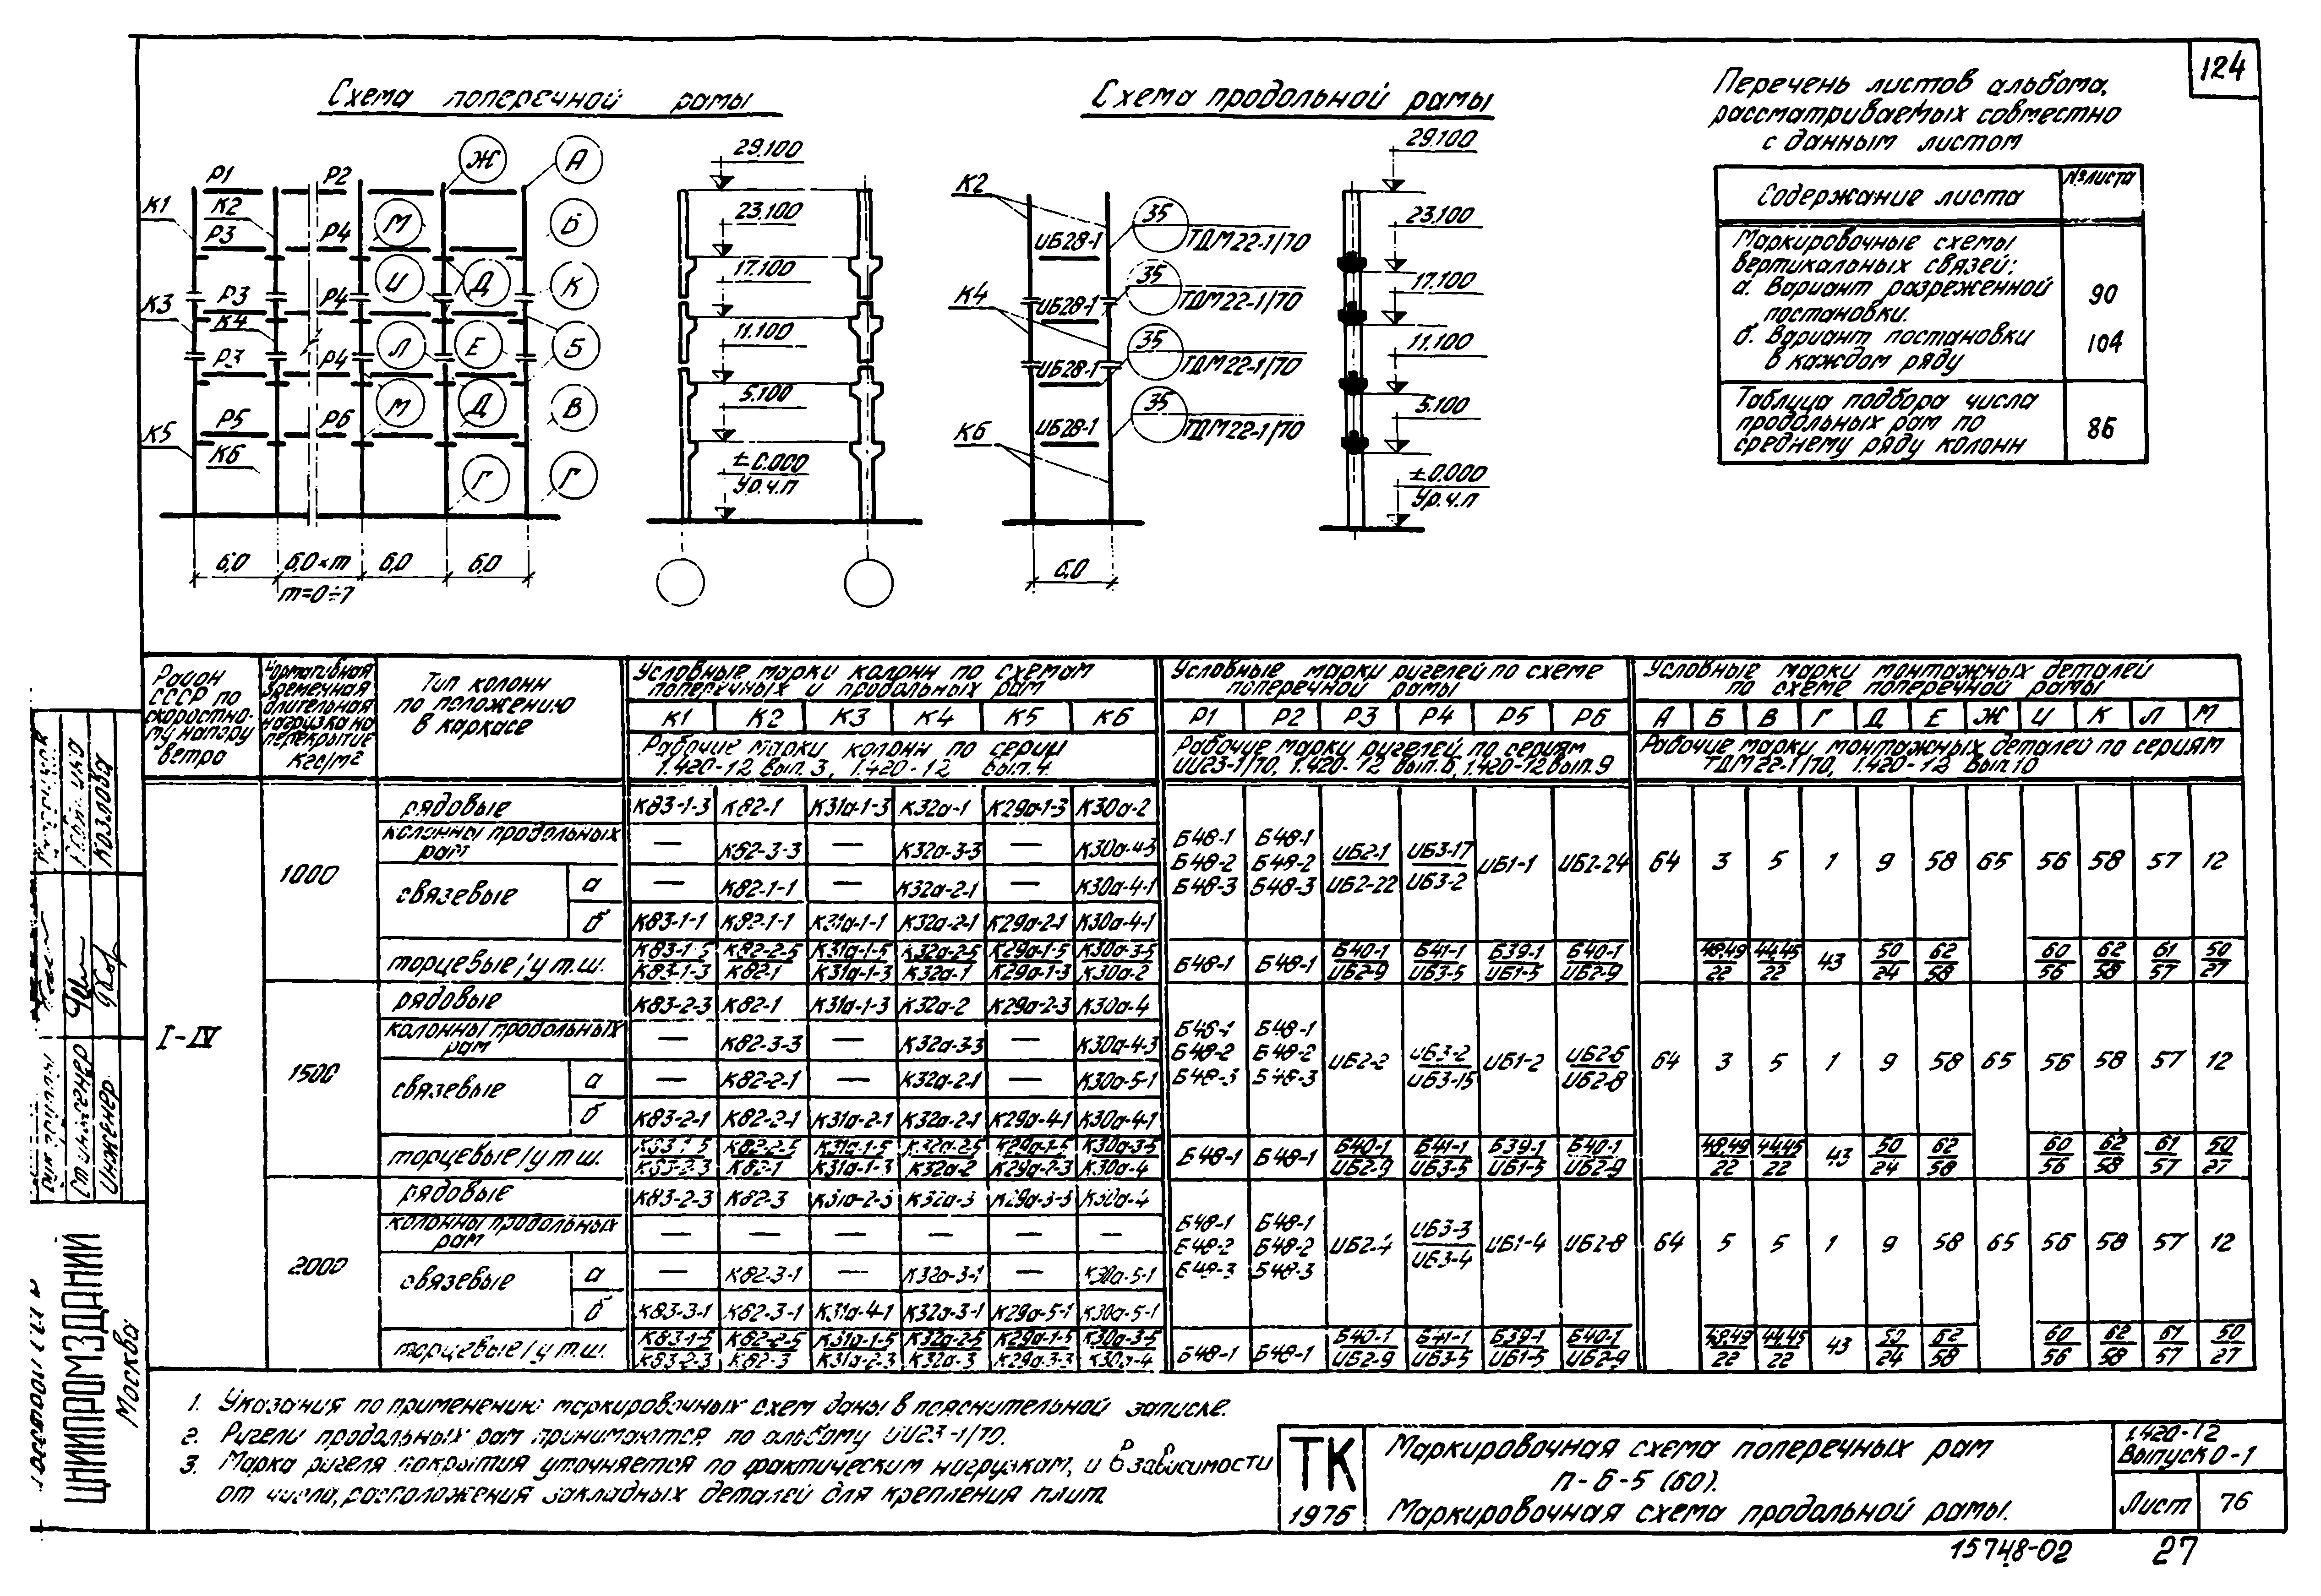 124
Схема поперечной рамы
Схема продольной рамы
Перечень листов альбома,
рассматриваемых совместно
с данным листом
Содержание листа
№ листа
Маркировочные схемы
вертикальных связей:
а. Вариант разреженной
постановки.
90
б. Вариант постановки
в каждом ряду
104
Таблица подбора числа
продольных рам по
среднему ряду колонн
86
Р1 Р2 Ж А
К1 К2 М Б
Р3 Р4
И Д К
К3 Р3 Р4
К4
Р3 Р4 Л Е Б
М Д В
К5 Р5 Р6
К6
Г Г
6,0 6,0×m 6,0 6,0
m=0÷7
29.100
23.100
17.100
11.100
5.100
±0.000
Ур.ч.п
К2
35
ИБ28-1 ТДМ22-1/70
35
К4 ИБ28-1 ТДМ22-1/70
35
ИБ28-1 ТДМ22-1/70
35
К6 ИБ28-1 ТДМ22-1/70
6,0
29.100
23.100
17.100
11.100
5.100
±0.000
Ур.ч.п
Район
СССР по
скоростно-
му напору
ветра
Нормативная
временная
длительная
нагрузка на
перекрытие
кгс/м²
Тип колонн
по положению
в каркасе
Условные марки колонн по схемам
поперечных и продольных рам
К1 К2 К3 К4 К5 К6
Рабочие марки колонн по серии
1.420-12 вып. 3, 1.420-12 вып. 4
Условные марки ригелей по схеме
поперечной рамы
Р1 Р2 Р3 Р4 Р5 Р6
Рабочие марки ригелей по сериям
ИИ23-1/70, 1.420-12 вып. 6, 1.420-12 вып. 9
Условные марки монтажных деталей
по схеме поперечной рамы
А Б В Г Д Е Ж И К Л М
Рабочие марки монтажных деталей по сериям
ТДМ22-1/70, 1.420-12 вып 10
I-IV
1000
рядовые К83-1-3 К82-1 К31а-1-3 К32а-1 К29а-1-3 К30а-2
колонны продольных
рам — К82-3-3 — К32а-3-3 — К30а-4-3
связевые
а — К82-1-1 — К32а-2-1 — К30а-4-1
б К83-1-1 К82-1-1 К31а-1-1 К32а-2-1 К29а-2-1 К30а-4-1
Б48-1 Б48-1
Б48-2 Б48-2 ИБ2-1 ИБ3-17 ИБ1-1 ИБ2-24
Б48-3 Б48-3 ИБ2-22 ИБ3-2
64 3 5 1 9 58 65 56 58 57 12
торцевые/у т.ш.
К83-1-5 К82-2-5 К31а-1-5 К32а-2-5 К29а-1-5 К30а-3-5
К83-1-3 К82-1 К31а-1-3 К32а-1 К29а-1-3 К30а-2
Б48-1 Б48-1 Б40-1 Б41-1 Б39-1 Б40-1
ИБ2-9 ИБ3-5 ИБ1-5 ИБ2-9
48,49 44,45 43 50 62 60 62 61 50
22 22 24 58 56 58 57 27
1500
рядовые К83-2-3 К82-1 К31а-1-3 К32а-2 К29а-2-3 К30а-4
колонны продольных
рам — К82-3-3 — К32а-3-3 — К30а-4-3
связевые
а — К82-2-1 — К32а-2-1 — К30а-5-1
б К83-2-1 К82-2-1 К31а-2-1 К32а-2-1 К29а-4-1 К30а-4-1
Б48-1 Б48-1
Б48-2 Б48-2 ИБ2-2 ИБ3-2 ИБ1-2 ИБ2-6
Б48-3 Б48-3 ИБ3-15 ИБ2-8
64 3 5 1 9 58 65 56 58 57 12
торцевые/у т.ш.
К83-1-5 К82-2-5 К31а-1-5 К32а-2-5 К29а-1-5 К30а-3-5
К83-2-3 К82-1 К31а-1-3 К32а-2 К29а-2-3 К30а-4
Б48-1 Б48-1 Б40-1 Б41-1 Б39-1 Б40-1
ИБ2-9 ИБ3-5 ИБ1-5 ИБ2-9
48,49 44,45 43 50 62 60 62 61 50
22 22 24 58 56 58 57 27
2000
рядовые К83-2-3 К82-3 К31а-2-3 К32а-3 К29а-3-3 К30а-4
колонны продольных
рам — — — — — —
связевые
а — К82-3-1 — К32а-3-1 — К30а-5-1
б К83-3-1 К82-3-1 К31а-4-1 К32а-3-1 К29а-5-1 К30а-5-1
Б48-1 Б48-1
Б48-2 Б48-2 ИБ2-4 ИБ3-3 ИБ1-4 ИБ2-8
Б48-3 Б48-3 ИБ3-4
64 5 5 1 9 58 65 56 58 57 12
торцевые/у т.ш.
К83-1-5 К82-2-5 К31а-1-5 К32а-2-5 К29а-1-5 К30а-3-5
К83-2-3 К82-3 К31а-2-3 К32а-3 К29а-3-3 К30а-4
Б48-1 Б48-1 Б40-1 Б41-1 Б39-1 Б40-1
ИБ2-9 ИБ3-5 ИБ1-5 ИБ2-9
48,49 44,45 43 50 62 60 62 61 50
22 22 24 58 56 58 57 27
1. Указания по применению маркировочных схем даны в пояснительной записке.
2. Ригели продольных рам принимаются по альбому ИИ23-1/70.
3. Марка ригеля покрытия уточняется по фактическим нагрузкам, и в зависимости
от числа, расположения закладных деталей для крепления плит
ТК
1975
Маркировочная схема поперечных рам
п-6-5 (60).
Маркировочная схема продольной рамы.
1.420-12
Выпуск 0-1
Лист 76
15748-02
27
ЦНИИПРОМЗДАНИЙ
Москва
Ст инженер
Инженер
Козлова